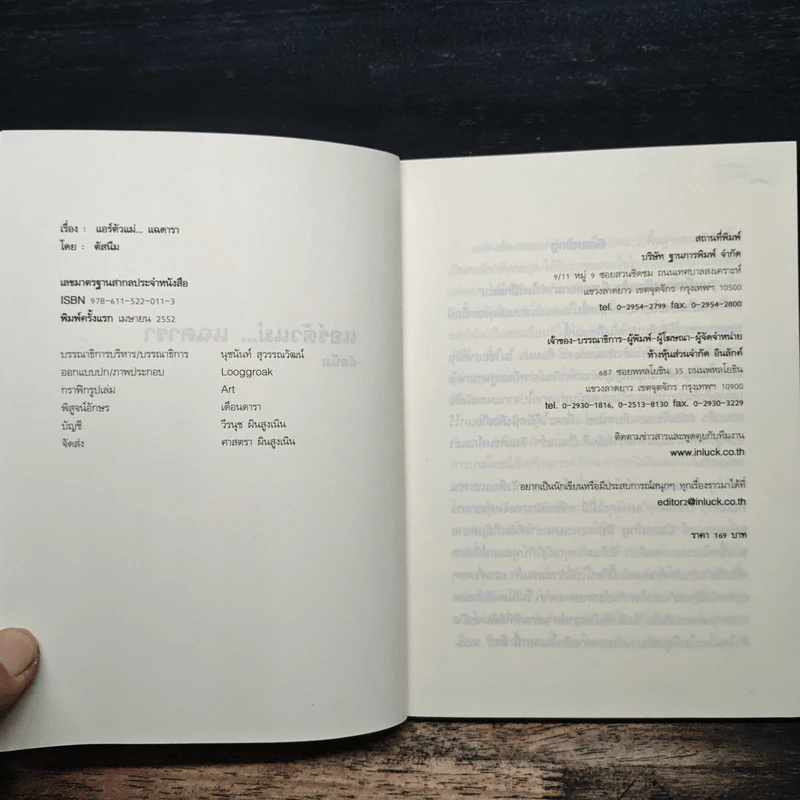 เรื่อง : แอร์ตัวแม่... แฉดารา
โดย : ตัสนีม
เลขมาตรฐานสากลประจำหนังสือ
ISBN 978-611-522-011-3
พิมพ์ครั้งแรก เมษายน 2552
บรรณาธิการบริหาร/บรรณาธิการ นุชนันท์ สุวรรณวัฒน์
ออกแบบปก/ภาพประกอบ Looggroak
กราฟิกรูปเล่ม Art
พิสูจน์อักษร เดือนดารา
บัญชี วีรนุช ผินสูงเนิน
จัดส่ง ศาสตรา ผินสูงเนิน
สถานที่พิมพ์
บริษัท ฐานการพิมพ์ จำกัด
9/11 หมู่ 9 ซอยสวนชิดชม ถนนเทศบาลสงเคราะห์
แขวงลาดยาว เขตจตุจักร กรุงเทพฯ 10500
tel. 0-2954-2799 fax. 0-2954-2800
เจ้าของ-บรรณาธิการ-ผู้พิมพ์-ผู้โฆษณา-ผู้จัดจำหน่าย
ห้างหุ้นส่วนจำกัด อินลักค์
687 ซอยพหลโยธิน 35 ถนนพหลโยธิน
แขวงลาดยาว เขตจตุจักร กรุงเทพฯ 10900
tel. 0-2930-1816, 0-2513-8130 fax. 0-2930-3229
ติดตามข่าวสารและพูดคุยกับทีมงาน
www.inluck.co.th
อยากเป็นนักเขียนหรือมีประสบการณ์สนุกๆ ทุกเรื่องราวมาได้ที่
editor2@inluck.co.th
ราคา 169 บาท